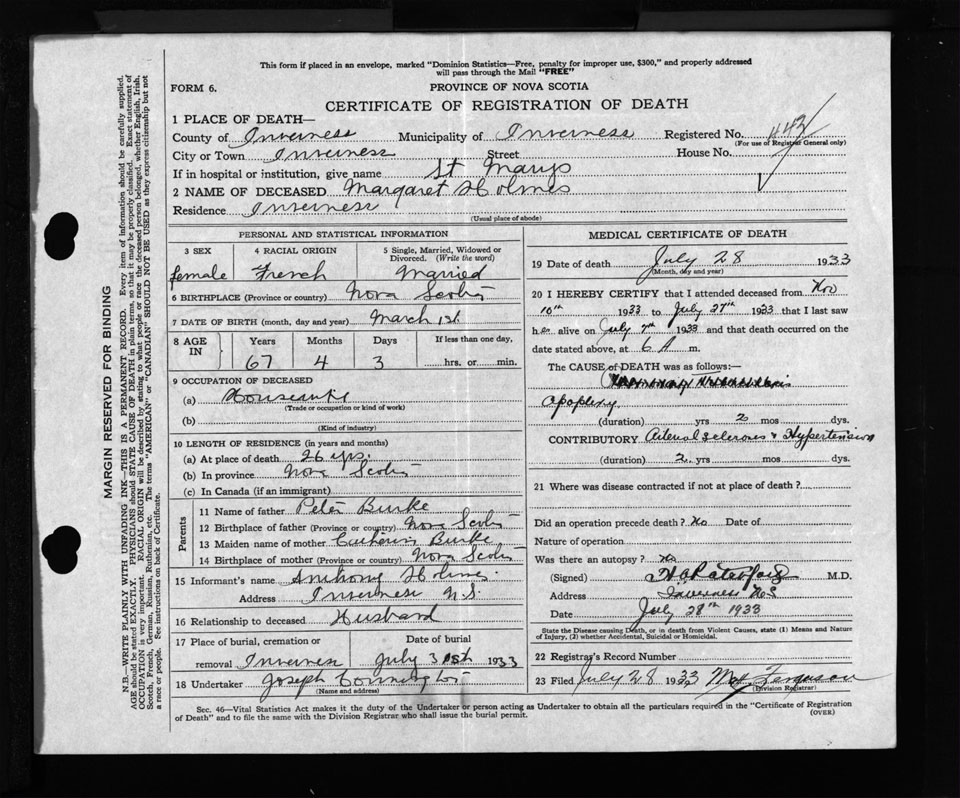 This form if placed in an envelope, marked "Dominion Statistics—Free, penalty for improper use, $300," and properly addressed
will pass through the Mail "FREE"
FORM 6.
PROVINCE OF NOVA SCOTIA
CERTIFICATE OF REGISTRATION OF DEATH
1 PLACE OF DEATH—
County of Inverness Municipality of Inverness Registered No. 443
(For use of Registrar General only)
City or Town Inverness Street House No.
If in hospital or institution, give name St Marys
2 NAME OF DECEASED Margaret Holmes
Residence Inverness
(Usual place of abode)
PERSONAL AND STATISTICAL INFORMATION
3 SEX 4 RACIAL ORIGIN 5 Single, Married, Widowed or
Divorced. (Write the word)
female French Married
6 BIRTHPLACE (Province or country) Nova Scotia
7 DATE OF BIRTH (month, day and year) March 1st
8 AGE IN Years Months Days If less than one day,
67 4 3 hrs. or min.
9 OCCUPATION OF DECEASED
(a)
(Trade or occupation or kind of work)
(b)
(Kind of industry)
10 LENGTH OF RESIDENCE (in years and months)
(a) At place of death 26 yrs.
(b) In province Nova Scotia
(c) In Canada (if an immigrant)
Parents
11 Name of father Peter Burke
12 Birthplace of father (Province or country) Nova Scotia
13 Maiden name of mother Burke
14 Birthplace of mother (Province or country) Nova Scotia
15 Informant's name Anthony Holmes
Address Inverness N.S.
16 Relationship to deceased Husband
17 Place of burial, cremation or Date of burial
removal Inverness July 31st 1933
18 Undertaker Joseph
(Name and address)
MEDICAL CERTIFICATE OF DEATH
19 Date of death July 28 1933
(Month, day and year)
20 I HEREBY CERTIFY that I attended deceased from
10th 1933 to July 27th 1933 that I last saw
her alive on July 1933 and that death occurred on
date stated above, at 6 A m.
The CAUSE of DEATH was as follows:—
Apoplexy
(duration) yrs 2 mos dys.
CONTRIBUTORY Arterial sclerosis & Hypertension
(duration) 2 yrs mos dys.
21 Where was disease contracted if not at place of death?
Did an operation precede death? No Date of
Nature of operation
Was there an autopsy? No
(Signed) M.D.
Address Inverness NS
Date July 28th 1933
State the Disease causing Death, or in death from Violent Causes, state (1) Means and Nature
of Injury, (2) whether Accidental, Suicidal or Homicidal.
22 Registrar's Record Number
23 Filed July 28 1933 Ferguson
(Division Registrar)
Sec. 46—Vital Statistics Act makes it the duty of the Undertaker or person acting as Undertaker to obtain all the particulars required in the "Certificate of Registration
of Death" and to file the same with the Division Registrar who shall issue the burial permit. (OVER)
MARGIN RESERVED FOR BINDING
N.B.—WRITE PLAINLY WITH UNFADING INK—THIS IS A PERMANENT RECORD. Every item of information should be carefully supplied.
AGE should be stated EXACTLY. PHYSICIANS should STATE CAUSE OF DEATH in plain terms, so that it may be properly classified. Exact statement of
OCCUPATION is very important. RACIAL ORIGIN will be described by stating to what people or race the deceased person belonged, whether English, Irish,
Scotch, French, German, Russian, Ruthenian, etc. The terms "AMERICAN" or "CANADIAN" SHOULD NOT BE USED as they express citizenship but not
a race or people. See instructions on back of Certificate.